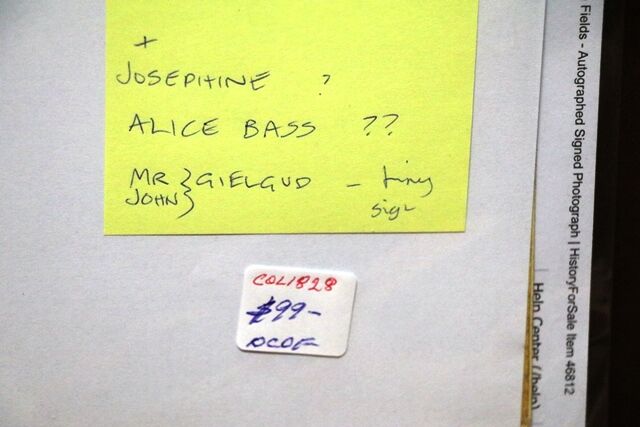 +
JOSEPHINE ?
ALICE BASS ??
MR } GIELGUD - tiny
JOHN } sig
COL1828
$99-
Fields - Autographed Signed Photograph | HistoryForSale Item 46812
Help Center (/help)